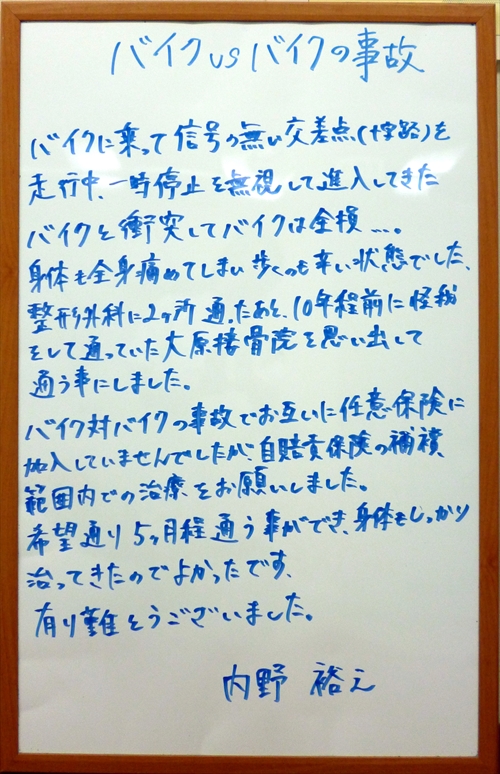 バイクvsバイクの事故
バイクに乗って信号の無い交差点(十字路)を
走行中、一時停止を無視して進入してきた
バイクと衝突してバイクは全損…。
身体も全身痛めてしまい歩くのも辛い状態でした、
整形外科に2ヶ所通ったあと、10年程前に怪我
をして通っていた大原接骨院を思い出して
通う事にしました。
バイク対バイクの事故でお互いに任意保険に
加入していませんでしたが、自賠責保険の補積
範囲内での治療をお願いしました。
希望通り5ヶ月程通う事ができ、身体もしっかり
治ってきたのでよかったです、
有り難とうございました。
内野 裕之